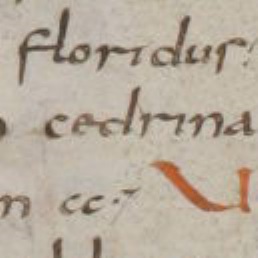 floridus
cedrina
cc.